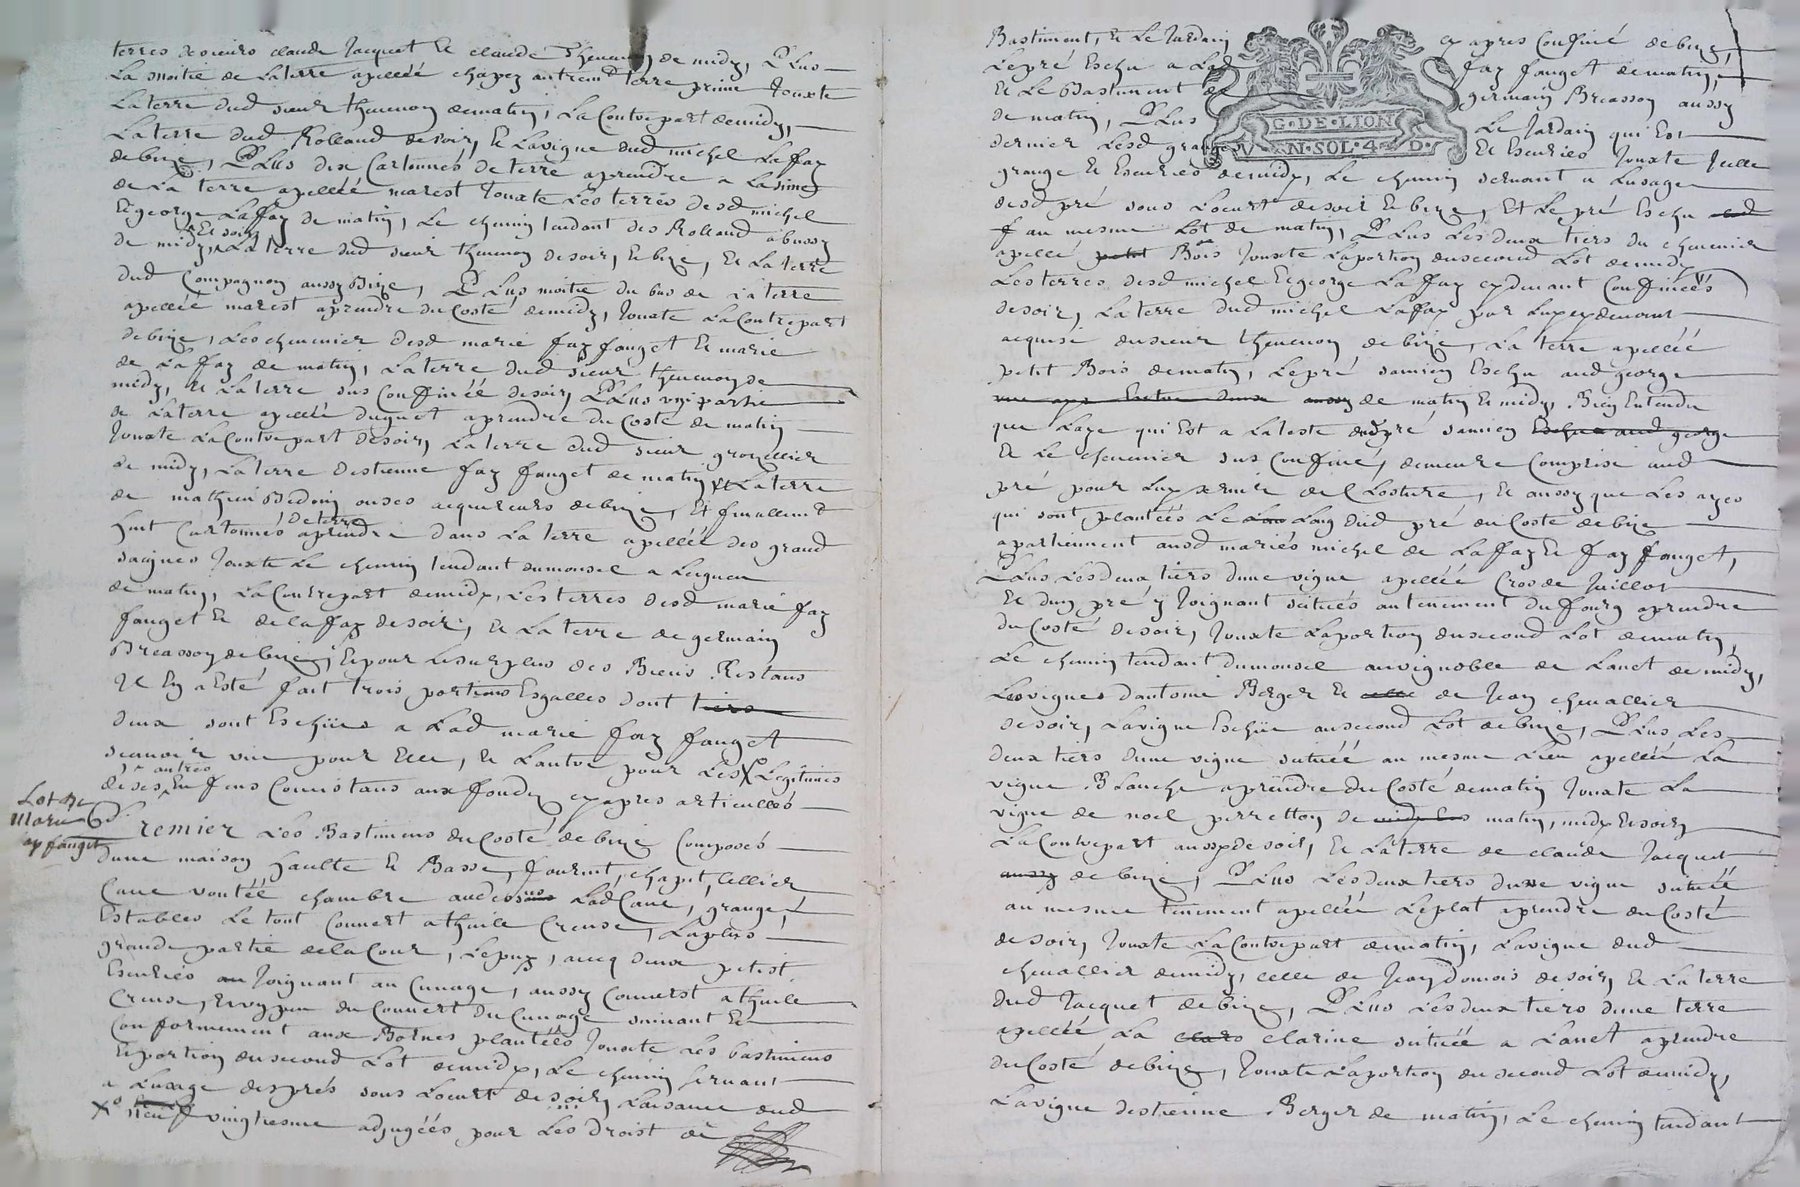 terres desieurs claude Jacquet et claude Theuenon de midy, Plus
La moitié de Laterre apelleé chapez autrem.t terre prime Jouxte
Laterre dud sieur theuenon dematin, LaContrepart demidy,
Laterre dud Rolland desoir, et Lavigne dud michel Lafay
debize, Plus dix Cartonnes de terre aprendre a Lasime
de La terre apelleé marest Jouxte Les terres desd michel
Et george Lafay de matin, Le chemin tendant des Rolland abussy
de midy, Et soir, La terre dud sieur theuenon desoir, et bize, Et La terre
dud Compagnon aussy Bize, Plus moitié du bas de La terre
apelleé marest aprendre du Costé demidy, Jouxte LaContrepart
debize, Lescheneuier desd marie fay fouget et marie
de Lafay de matin, Laterre dud sieur theuenon de
midy, et Laterre sus Confineé desoir, Plus vne partie
de Laterre apelleé duguet aprendre du Costé de matin
Jouxte LaContrepart desoir, Laterre dud sieur grozellier
de midy, Laterre destienne fay fouget de matin et Laterre
de mathieu Bedoin ouses acquereurs debize, Et finallem.t
huit Cartonnes de terre aprendre dans La terre apelleé des grand
saignes Jouxte Le chemin tendant dumonsel a Leigneu
de matin, LaContrepart demidy, Les terres desd marie fay
fouget et de Lafay desoir, et La terre de germain
Breasson debize, Et pour Lesurplus des Biens Restans
Il En a Esté fait trois portions Esgalles dont tiers
deux sont Escheües a Lad marie fay fouget
scauoir vne pour elle, et Lautre pour Les X Legitimes
de ses autres Enfens Consistans aux fondz cyapres articullés
Lot de
Marie
fay fouget
Premier Les Bastimens du Costé de bize Composés
dune maison haulte et Basse, fournit, chapit, Cellier
Caue voutéé chambre audessous sus Lad Caue, grange,
Estables Le tout Couuert athuile Creuse, Laplus
grande partie dela Cour, Lepuy, aueq deux petist
Escuries au Joignant au Cuuage, aussy Couuerst athuile
Creuse, Et vy peu du Couuert du Cuuage suiuant et
Conformement aux Bornes plantéés Jouxte Les bastimens
Et portion dusecond Lot demidy, Le chemin seruant
a Lusage després sous Loeurt desoir, Laisance dud
X vingtiesme adjugéés pour Les droist de
Bastiment, et Le Jardin cy apres Confiné de bize,
Lepré Escheu a Lad fay fouget dematin,
Et Le Bastiment de germain Breasson aussy
de matin, Plus Le Jardin qui Est
dernier Lesd granges Et Escuries Jouxte Icelle
G·DE·LION
V N·SOL·4·D·
grange et Escuries demidy, Le chemin seruant a Lusage
desd pré sous Loeurt desoir Et bize, Et Lepré Escheu
au mesme Lot de matin, Plus Les deux tiers du cheneuier
apellé petit Bois Jouxte Laportion dusecond Lot demidy
Les terres desd michel Et george Lafay cydeuant Confineés
desoir, Laterre dud michel Lafay par Luy cydeuant
acquise dusieur theuenon debize, La terre apelleé
petit Bois dematin, Lepré samien Escheu aud george
de matin et midy, Bien Entendu
que Laye qui Est a Lateste dudpré samien Escheu aud george
et Le cheneuier sus Confiné, demeure Comprise aud
pré pour Luy seruir de Closture, et aussy que Les ayes
qui sont plantéés Le Long dud pré du Costé debize
apartiennent ausd mariés michel de Lafay Et fay fouget,
Plus Lesdeux tiers dune vigne apelleé Cros de Juillot
Et dun pré y Joignant scitués autenement du fourg aprendre
du Costé desoir, Jouxte Laportion dusecond Lot dematin,
Le chemin tendant dumonsel auvignoble de Lanet de midy,
Lesvignes dantoine Berger et celle de Jean cheuallier
desoir, Lavigne Escheüe ausecond Lot debize, Plus Les
deux tiers dune vigne scituéé au mesme Lieu apelleé La
vigne Blanche aprendre du Costé dematin Jouxte La
vigne de noel perretton de matin, midy Et soir
LaContrepart aussy de soir, Et Laterre de claude Jacquet
aussy debize, Plus Les deux tiers dune vigne scituéé
au mesme tenement apelleé Leplat aprendre du Costé
de soir, Jouxte LaContrepart dematin, Lavigne dud
cheuallier demidy, celle de Jean domois desoir, et Laterre
dud Jacquet debize, Plus Les deux tiers dune terre
apelleé La claro clarine scituéé a Lanet aprendre
du Costé debize, Jouxte Laportion dusecond Lot demidy,
Lavigne destienne Berger de matin, Le chemin tendant